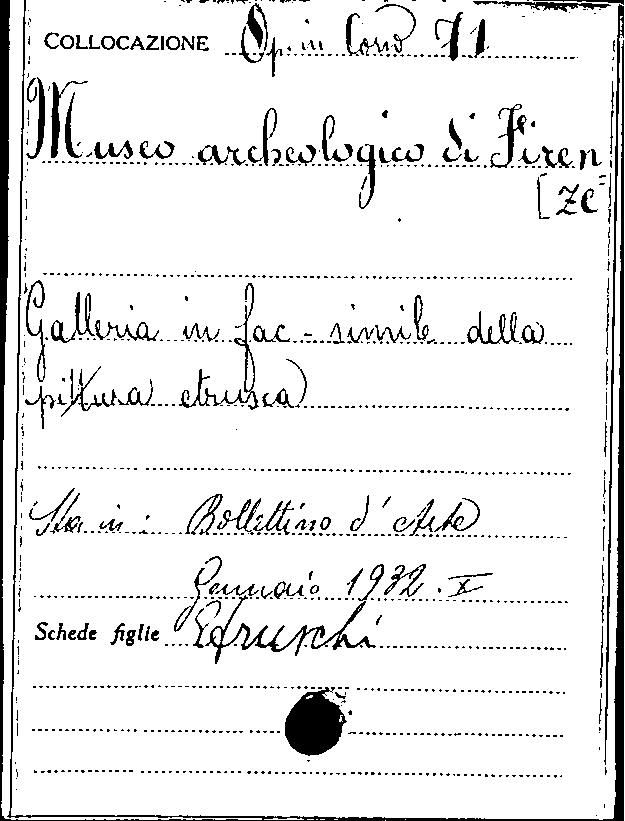 COLLOCAZIONE Op. in Corso 71
Museo archeologico di Firen
[ze=
Galleria in fac-simile della
pittura etrusca
Sta in: Bollettino d'Arte
Gennaio 1932. X
Schede figlie Etruschi